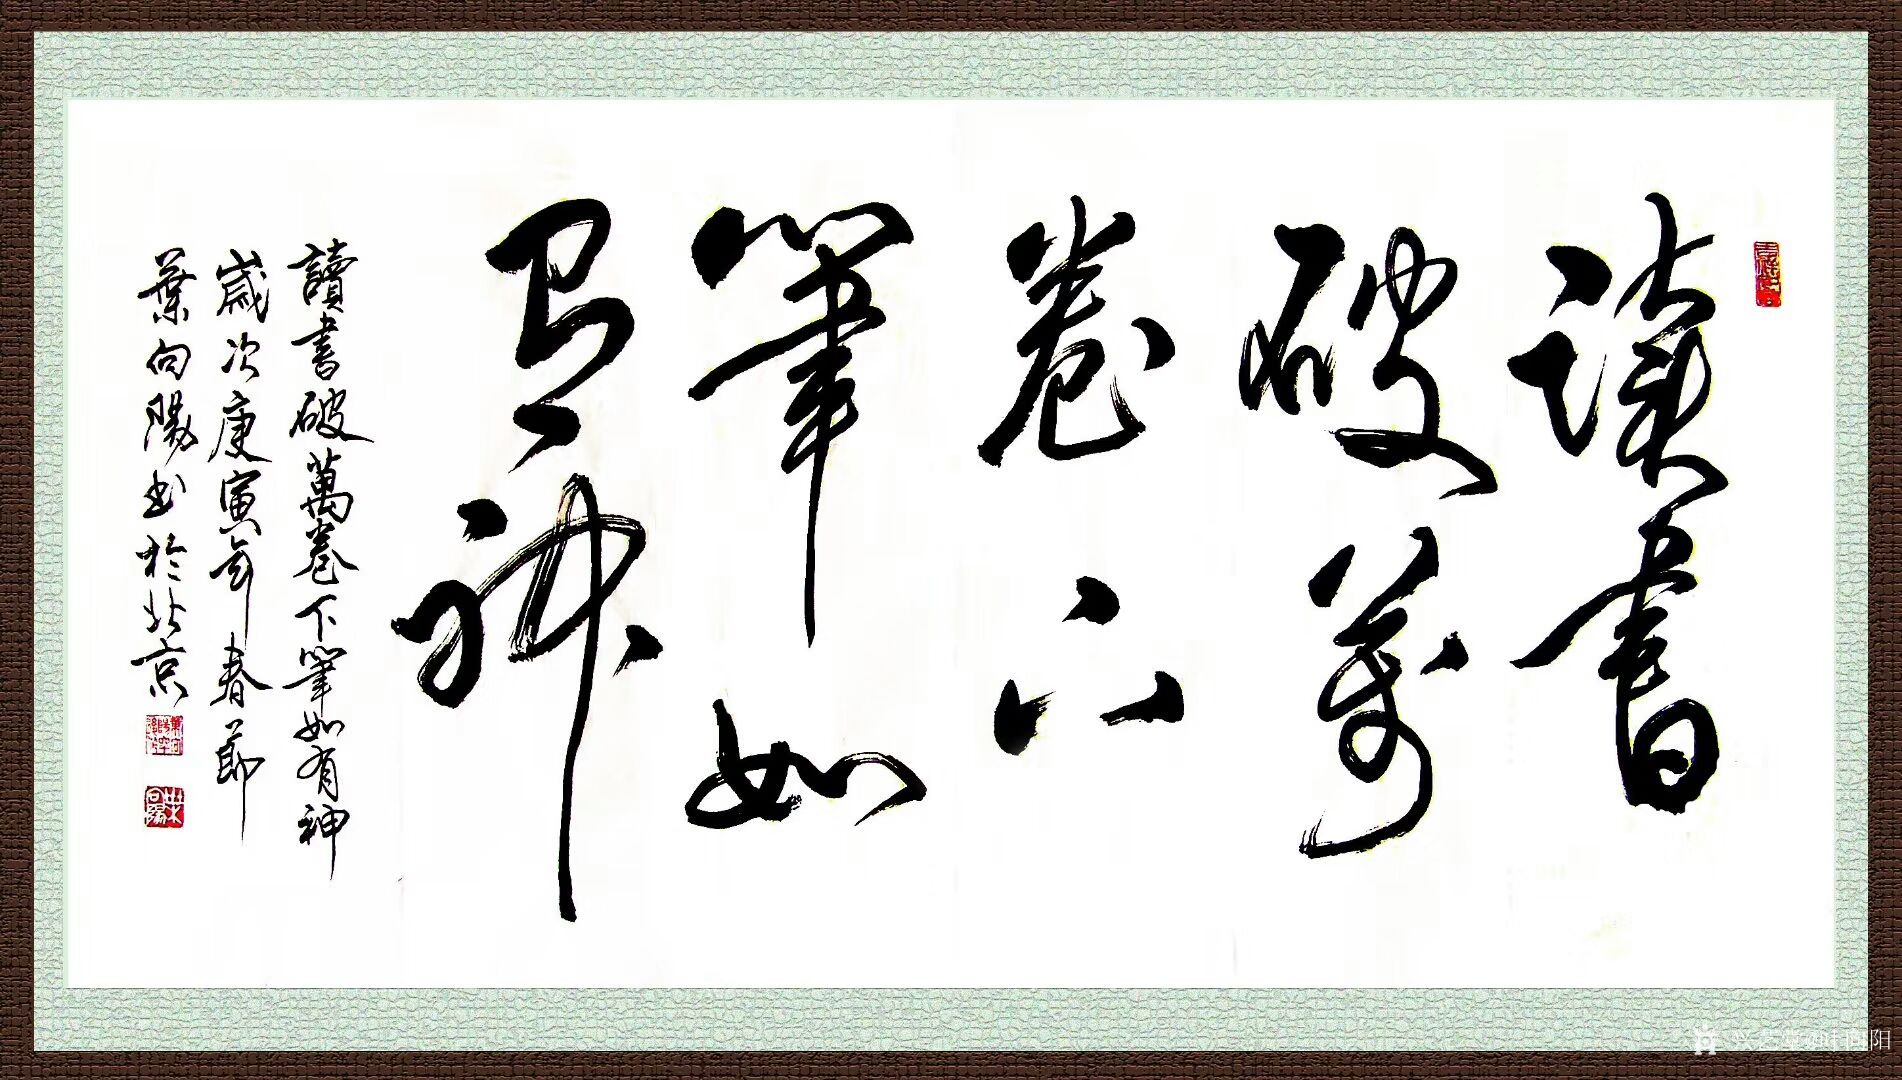 讀書
破萬
卷下
筆如
有神
讀書破萬卷下筆如有神
歲次庚寅年春節
葉向陽書於北京
葉向陽